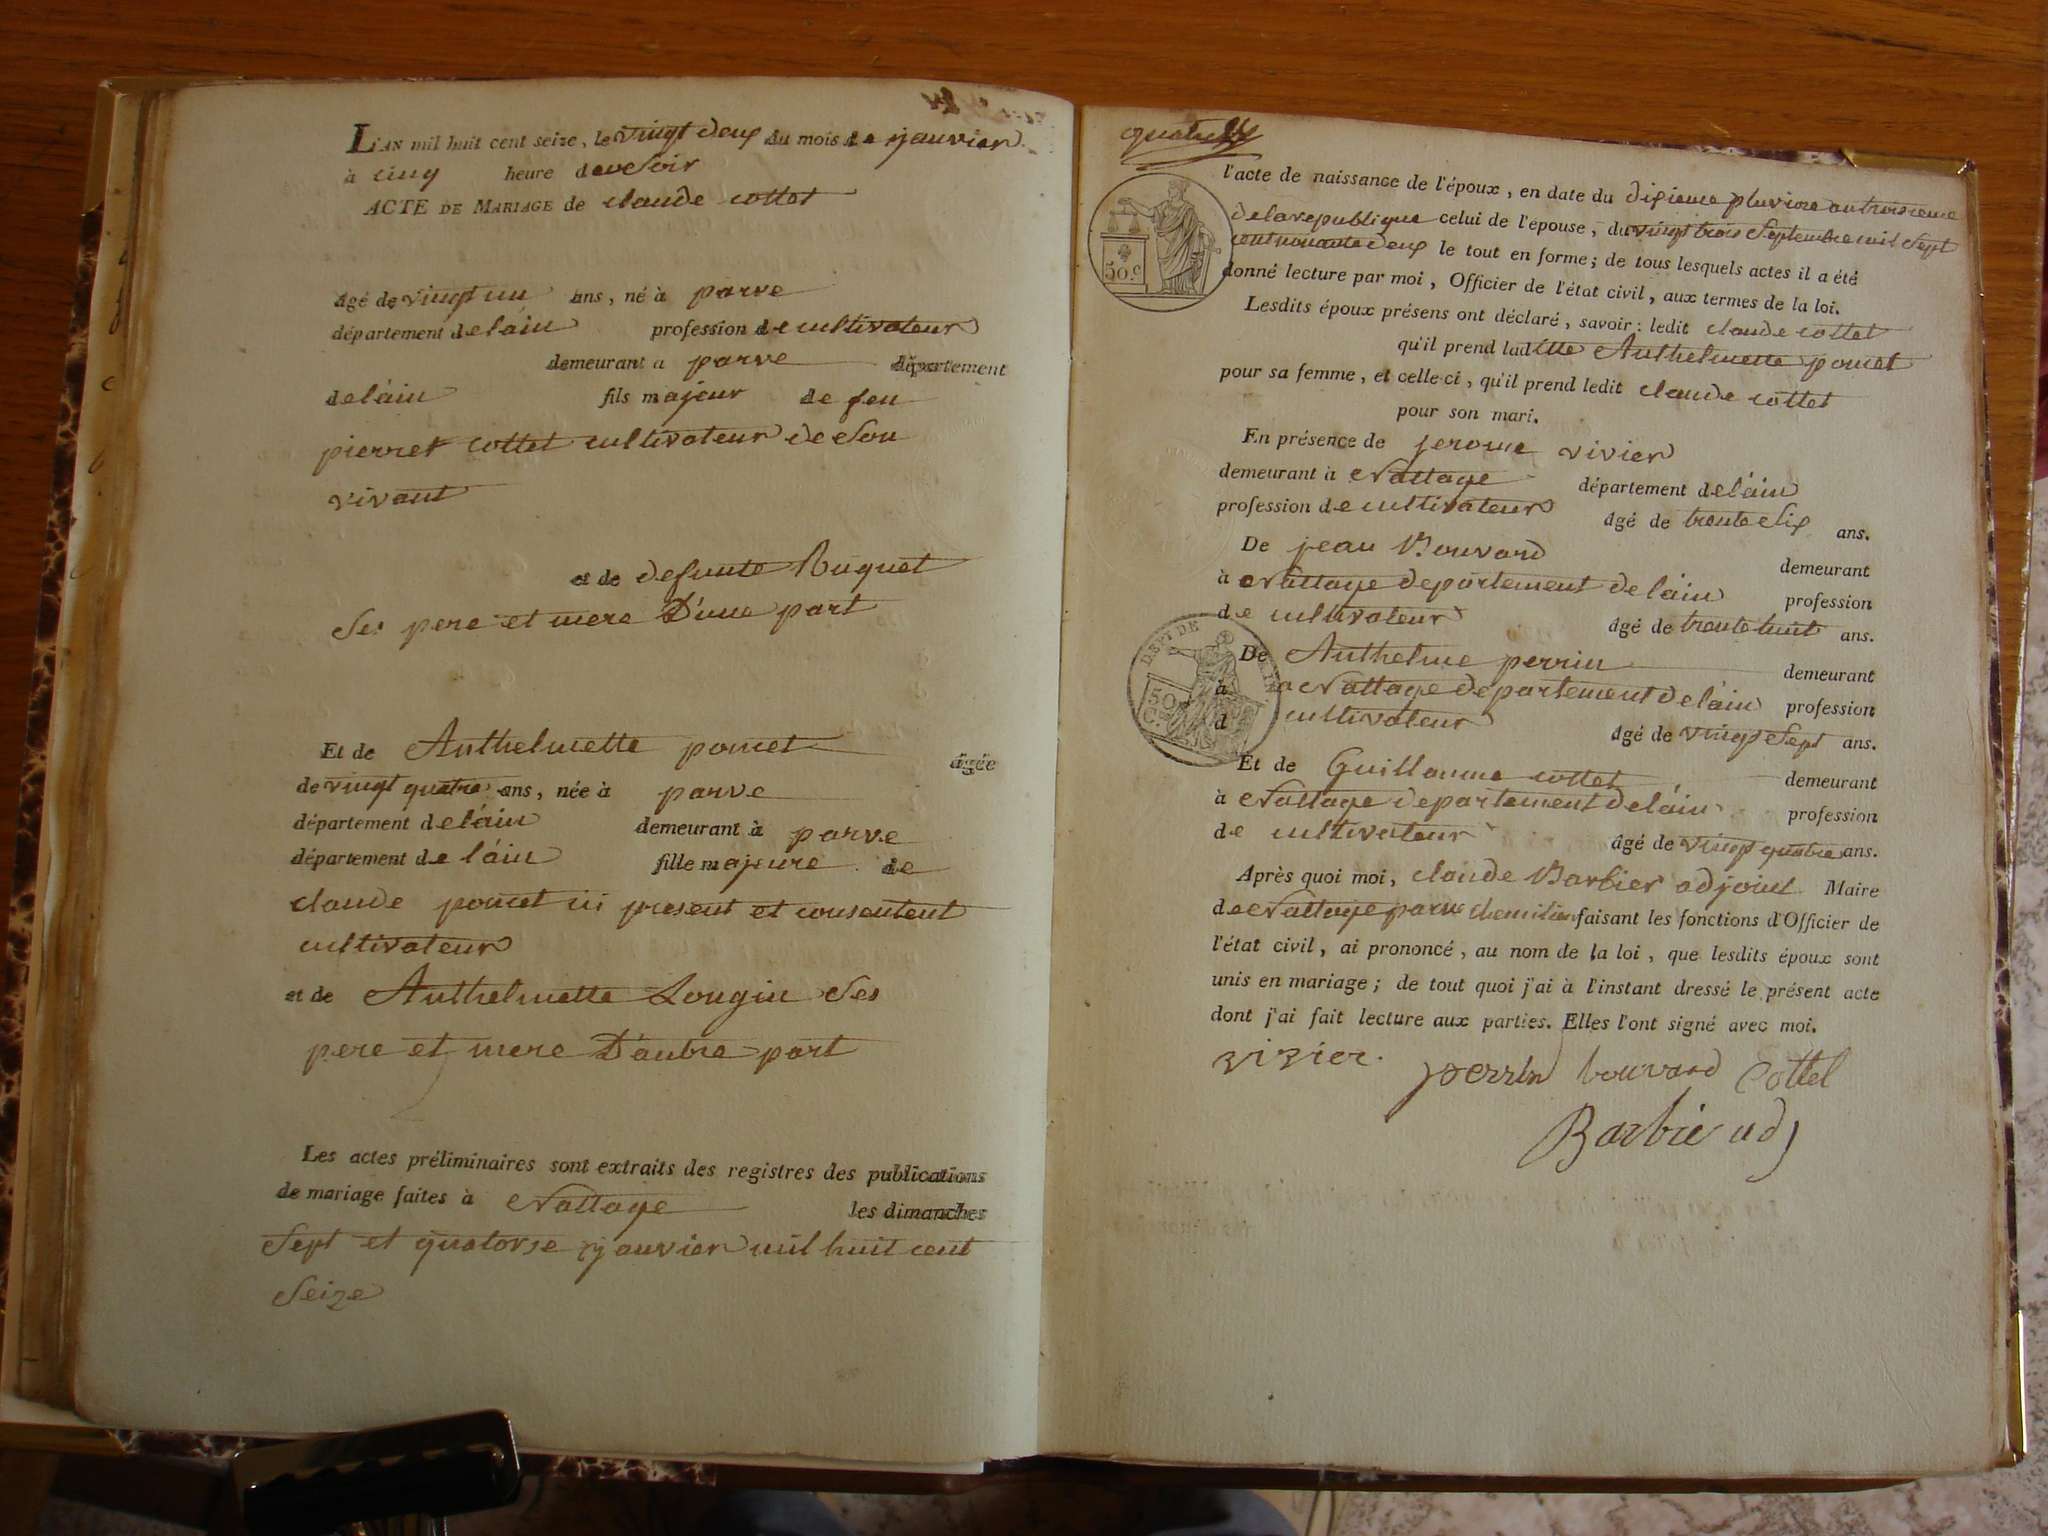 L'AN mil huit cent seize, le vingt deux du mois de janvier
à cinq heure du soir
ACTE DE MARIAGE de claude cottet
âgé de vingt un ans, né à parve
département de láin profession de cultivateur
demeurant a parve département
de láin fils majeur de feu
pierret cottet cultivateur de son
vivant
et de defunte Ruguet
Ses pere et mere D'une part
Et de Anthelmette poncet âgée
de vingt quatre ans, née à parve
département de láin demeurant à parve
département de láin fille majeure de
claude poncet ici present et consentent
cultivateur
et de Anthelmette Longin Ses
pere et mere D'autre part
Les actes préliminaires sont extraits des registres des publications
de mariage faites à Nattage les dimanches
Sept et quatorse janvier mil huit cent
Seize
quatre
l'acte de naissance de l'époux, en date du dixieme pluviose an troisieme
de la republique celui de l'épouse, du vingt trois Septembre mil Sept
cent nonante deux le tout en forme; de tous lesquels actes il a été
donné lecture par moi, Officier de l'état civil, aux termes de la loi.
50.c
Lesdits époux présens ont déclaré, savoir: ledit claude cottet
qu'il prend laditte Anthelmette poncet
pour sa femme, et celle-ci, qu'il prend ledit claude cottet
pour son mari.
En présence de jerome vivier
demeurant à Nattage département de láin
profession de cultivateur âgé de trente Six ans.
De jean Bouvard demeurant
à Nattage departement de láin profession
de cultivateur âgé de trente huit ans.
DEPT DE
50
C.
De Anthelme perrin demeurant
à a Nattage departement de láin profession
d cultivateur âgé de vingt Sept ans.
Et de Guillaume cottet demeurant
à Nattage departement de láin profession
de cultivateur âgé de vingt quatre ans.
Après quoi moi, claude Barbier adjoint Maire
de Nattage parve chemilieu faisant les fonctions d'Officier de
l'état civil, ai prononcé, au nom de la loi, que lesdits époux sont
unis en mariage; de tout quoi j'ai à l'instant dressé le présent acte
dont j'ai fait lecture aux parties. Elles l'ont signé avec moi.
vivier. perrin bouvard Cottet
Barbie adj